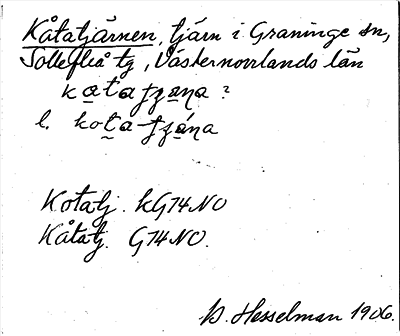 Kåtatjärnen, tjärn i Graninge sn,
Sollefteå tg, Västernorrlands län
l.
Kotatj. kG74NO
Kåtatj. G74NO.
B. Hesselman 1906.